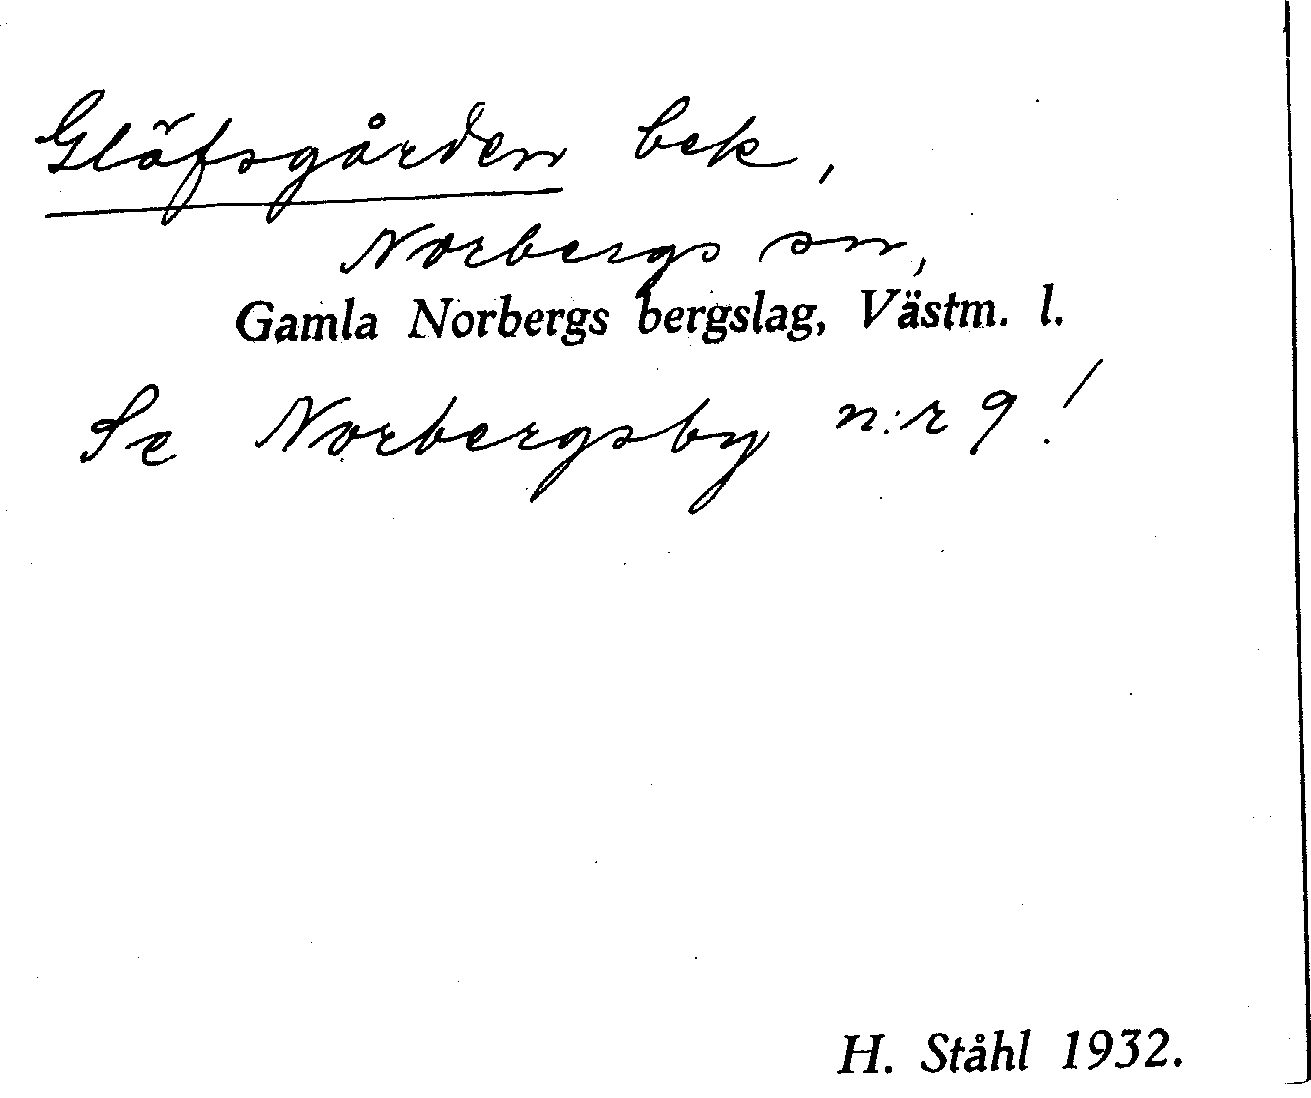 Gläfsgården bek,
Norbergs sn,
Gamla Norbergs bergslag, Västm. l.
Se Norbergsby n:r 9!
H. Ståhl 1932.